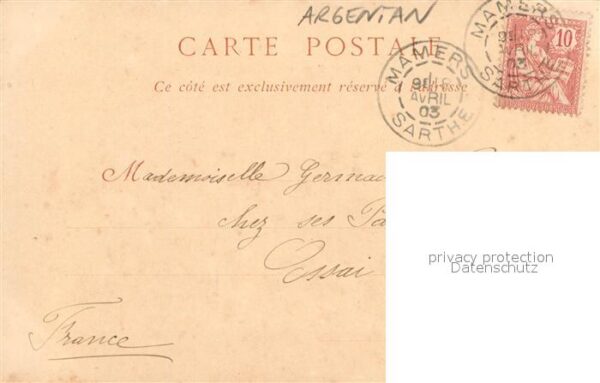 ARGENTAN
CARTE POSTALE
Ce côté est exclusivement réservé à l'adresse
MAMERS
AVRIL
03
SARTHE
MAMERS
03
SARTHE
10
Mademoiselle Germa
chez ses Pa
Essai
France
privacy protection
Datenschutz